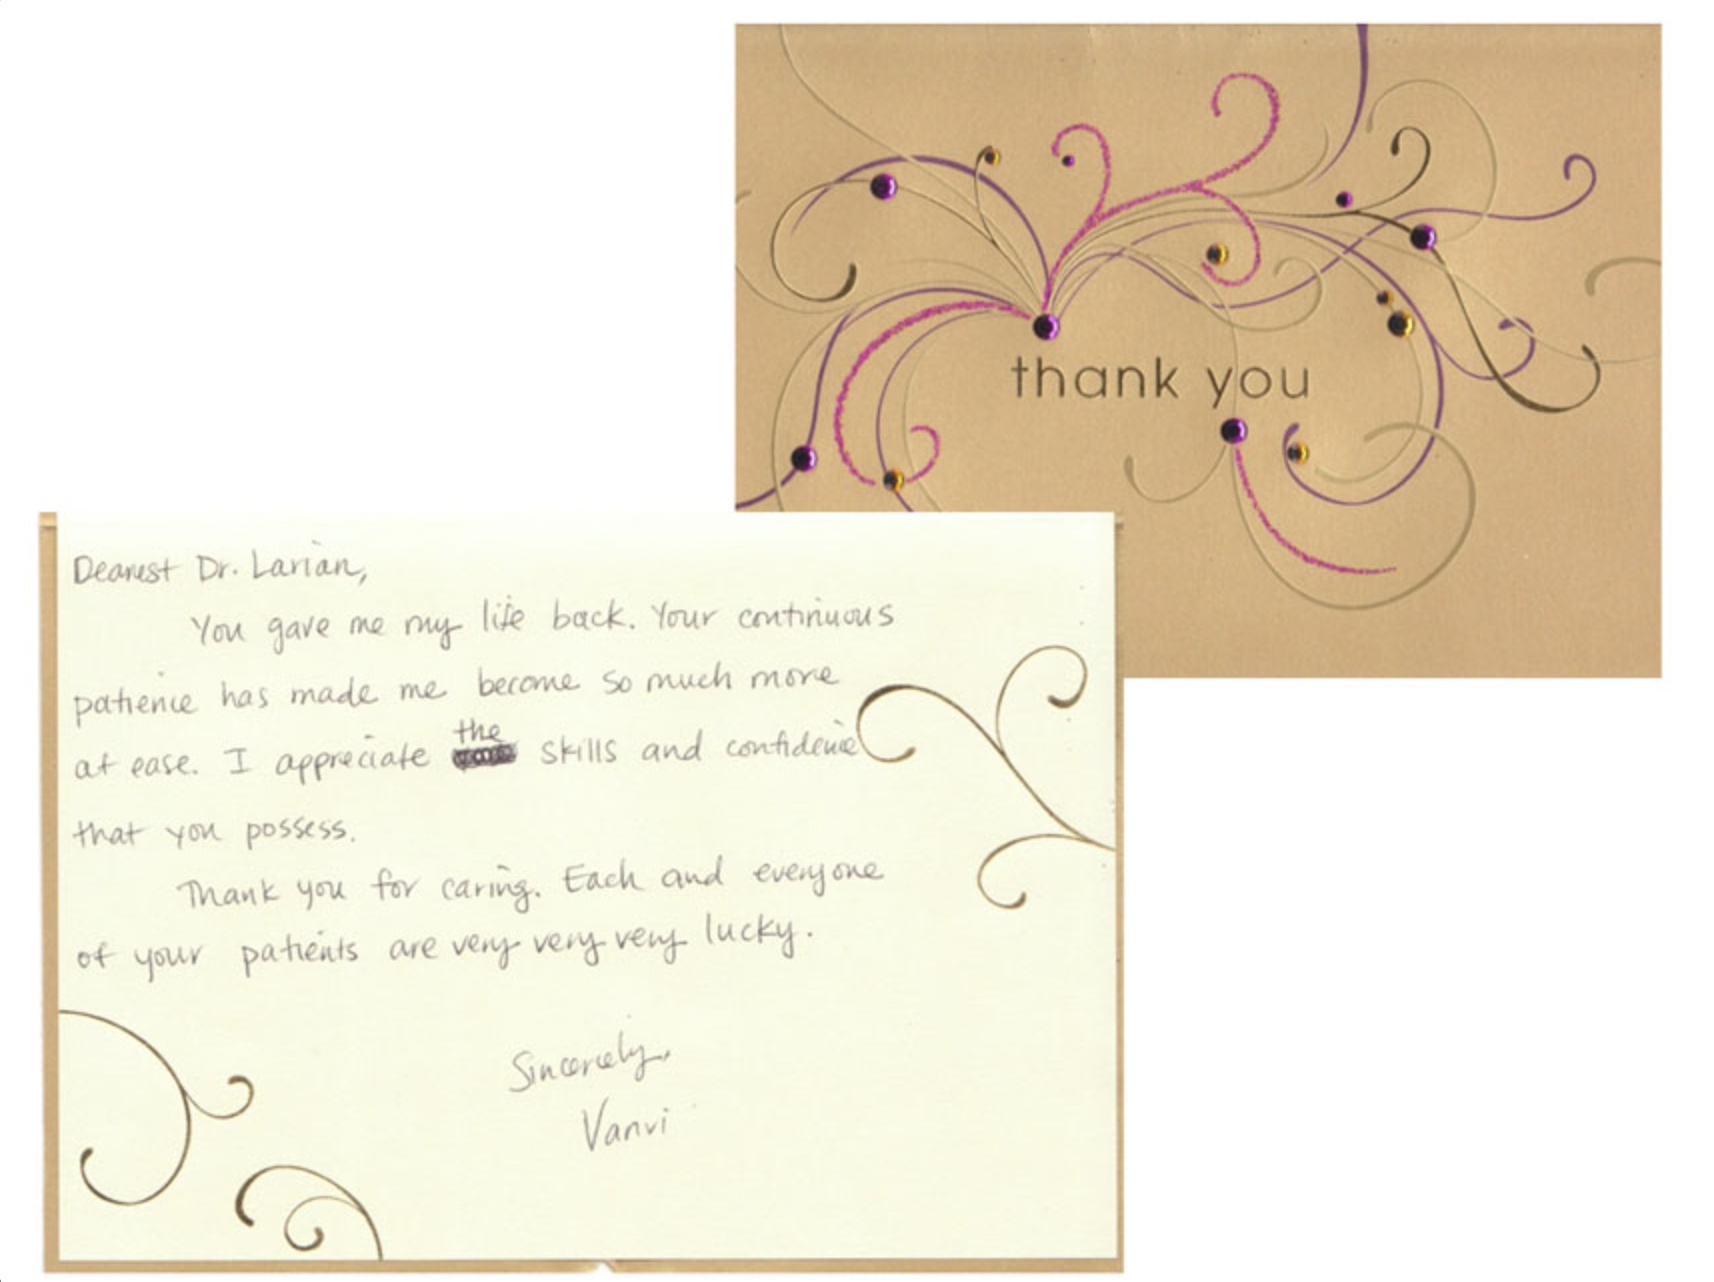 thank you
Dearest Dr. Larian,
You gave me my life back. Your continuous
patience has made me become so much more
at ease. I appreciate the skills and confidence
that you possess.
Thank you for caring. Each and everyone
of your patients are very very very lucky.
Sincerely,
Vanvi